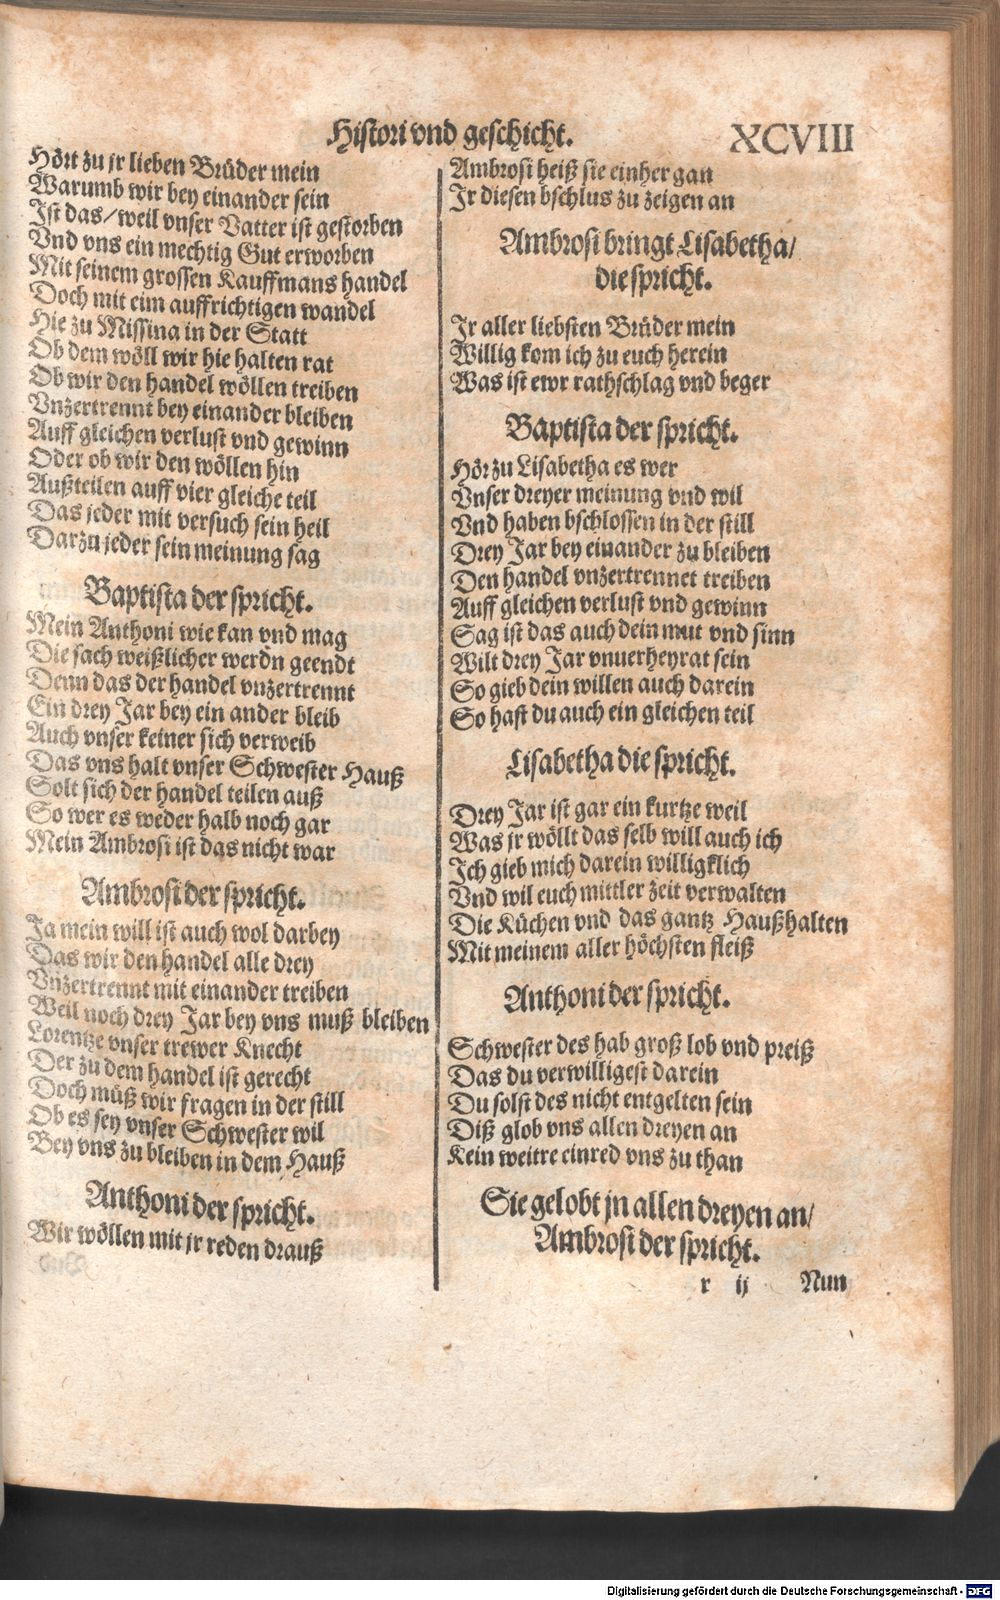 Histori vnd geschicht.
XCVIII
Hört zu jr lieben Brüder mein
Warumb wir bey einander sein
Ist das/ weil vnser Vatter ist gestorben
Vnd vns ein mechtig Gut erworben
Mit seinem grossen Kauffmans handel
Doch mit eim auffrichtigen wandel
Hie zu Missina in der Statt
Ob dem wöll wir hie halten rat
Ob wir den handel wöllen treiben
Vnzertrennt bey einander bleiben
Auff gleichen verlust vnd gewinn
Oder ob wir den wöllen hin
Außteilen auff vier gleiche teil
Das jeder mit versuch sein heil
Darzu jeder sein meinung sag
Baptista der spricht.
Mein Anthoni wie kan vnd mag
Die sach weißlicher werdn geendt
Denn das der handel vnzertrennt
Ein drey Jar bey ein ander bleib
Auch vnser keiner sich verweib
Das vns halt vnser Schwester Hauß
Solt sich der handel teilen auß
So wer es weder halb noch gar
Mein Ambrosi ist das nicht war
Ambrosi der spricht.
Ja mein will ist auch wol darbey
Das wir den handel alle drey
Vnzertrennt mit einander treiben
Weil noch drey Jar bey vns muß bleiben
Lorentze vnser trewer Knecht
Der zu dem handel ist gerecht
Doch müß wir fragen in der still
Ob es sey vnser Schwester wil
Bey vns zu bleiben in dem Hauß
Anthoni der spricht.
Wir wöllen mit jr reden drauß
Ambrosi heiß sie einher gan
Ir diesen bschlus zu zeigen an
Ambrosi bringt Lisabetha/
die spricht.
Ir aller liebsten Brüder mein
Willig kom ich zu euch herein
Was ist ewr rathschlag vnd beger
Baptista der spricht.
Hör zu Lisabetha es wer
Vnser dreyer meinung vnd wil
Vnd haben bschlossen in der still
Drey Jar bey einander zu bleiben
Den handel vnzertrennet treiben
Auff gleichen verlust vnd gewinn
Sag ist das auch dein mut vnd sinn
Wilt drey Jar vnuerheyrat sein
So gieb dein willen auch darein
So hast du auch ein gleichen teil
Lisabetha die spricht.
Drey Jar ist gar ein kurtze weil
Was jr wöllt das selb will auch ich
Ich gieb mich darein willigklich
Vnd wil euch mittler zeit verwalten
Die Küchen vnd das gantz Haußhalten
Mit meinem aller höchsten fleiß
Anthoni der spricht.
Schwester des hab groß lob vnd preiß
Das du verwilligest darein
Du solst des nicht entgelten sein
Diß glob vns allen dreyen an
Kein weitre einred vns zu than
Sie gelobt jn allen dreyen an/
Ambrosi der spricht.
r ij
Nun
Digitalisierung gefördert durch die Deutsche Forschungsgemeinschaft - DFG